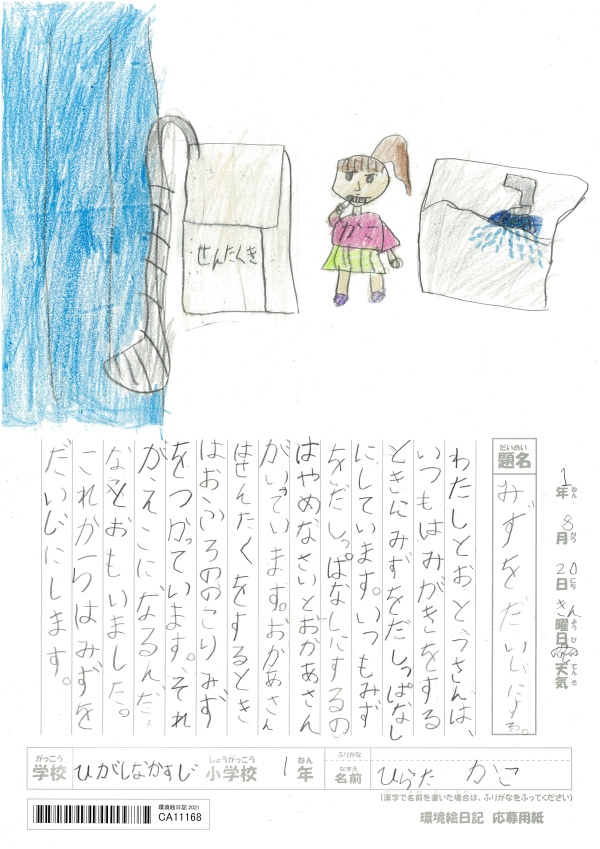 せんたくき
かこ
1年 8月 20日 きん曜日 天気
ねん がつ にち ようび てんき
だいめい
題名
みずをだいじにする。
わたしとおとうさんは、
いつもはみがきをする
ときにみずをだしっぱなし
にしています。いつもみず
をだしっぱなしにするの
はやめなさいとおかあさん
がいっています。おかあさん
はせんたくをするとき
はおふろののこりみず
をつかっています。それ
がえこになるんだ
なとおもいました。
これからはみずを
だいじにします。
がっこう しょうがっこう ねん
学校 ひがしなかすじ 小学校 1年
ふりがな
なまえ
名前 ひらた かこ
(漢字で名前を書いた場合は、ふりがなをふってください)
環境絵日記 2021
CA11168
環境絵日記 応募用紙